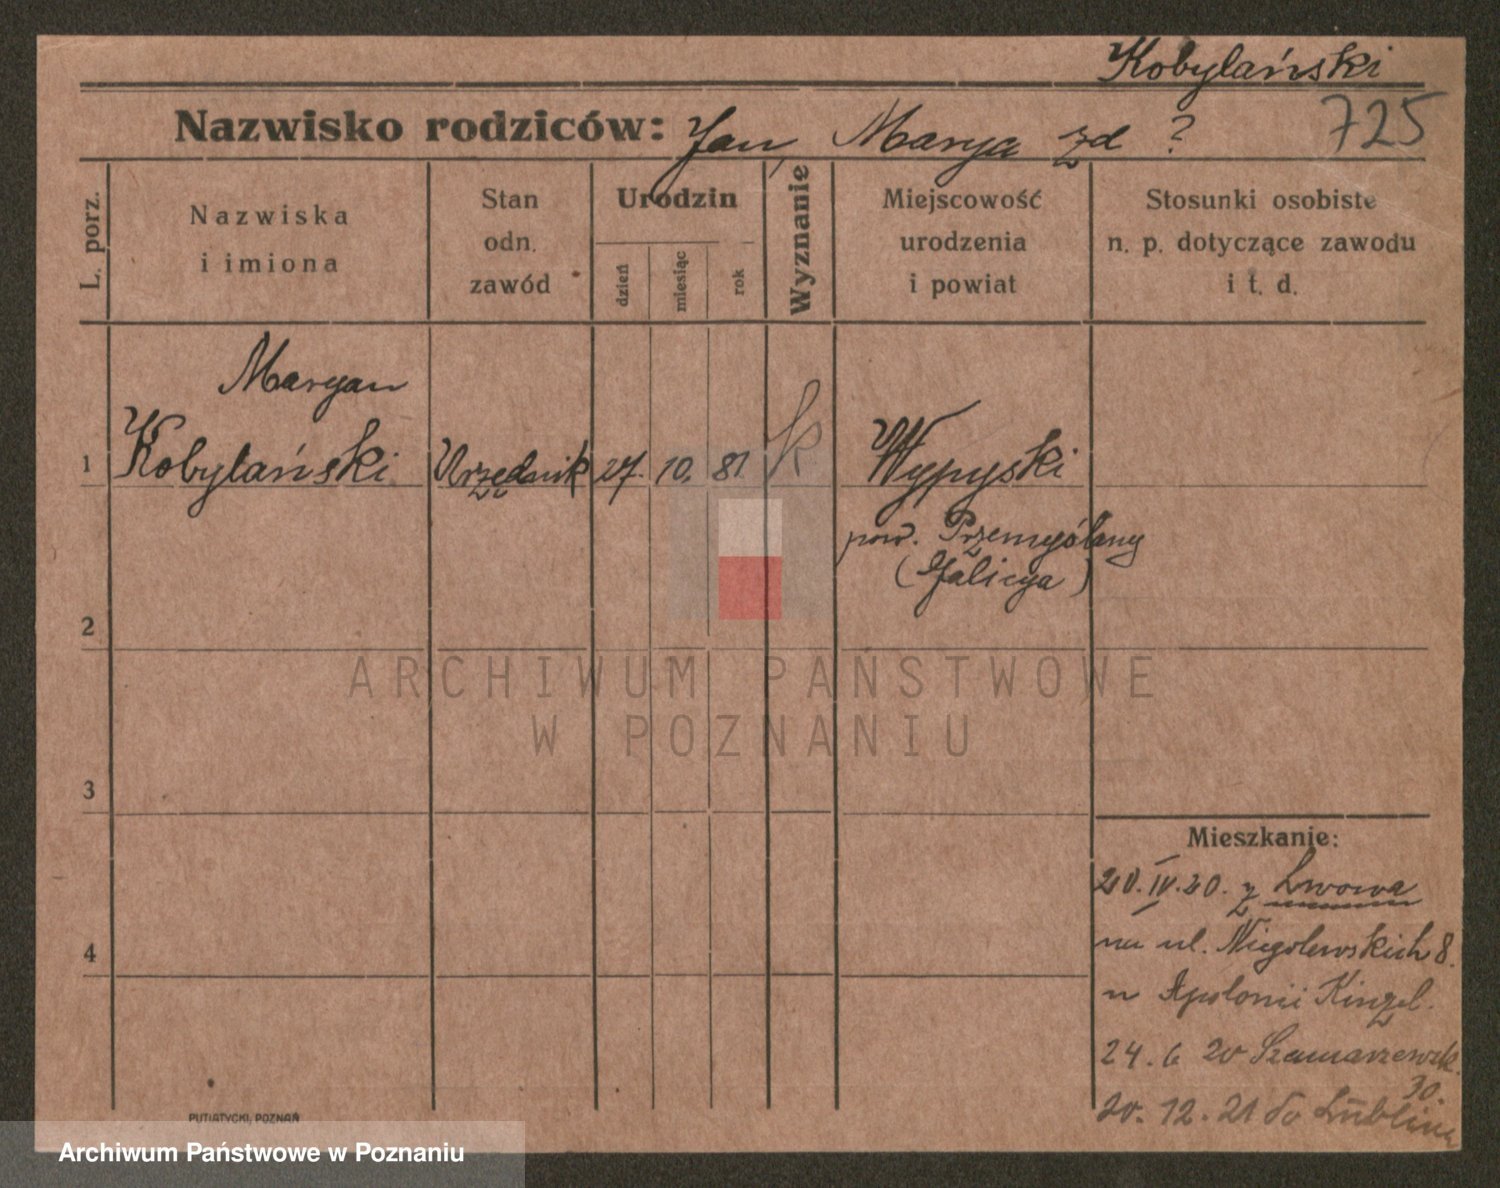 Kobylański
Nazwisko rodziców: Jan, Marya zd ?
725
L. porz.
Nazwiska
i imiona
Stan
odn.
zawód
Urodzin
dzień
miesiąc
rok
Wyznanie
Miejscowość
urodzenia
i powiat
Stosunki osobiste
n. p. dotyczące zawodu
i t. d.
Maryan
1 Kobylański Urzędnik 27. 10. 81 k Wypyski
pow. Przemyślany
(Galicya)
2
3
4
ARCHIWUM PAŃSTWOWE
W POZNANIU
Mieszkanie:
20. IV. 20. z Lwowa
na ul. Niegolewskich 8.
u Apolonii Kinzel.
24. 6 20 Szamarzewsk.
30.
20. 12. 21 do Lublina
PUTIATYCKI, POZNAŃ
Archiwum Państwowe w Poznaniu